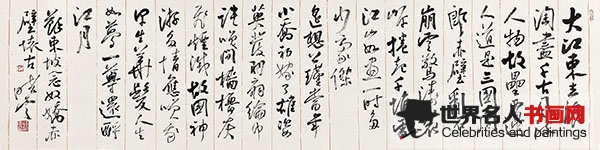 大江东去浪
淘尽千古
人物故垒西边
人道是三国周
郎赤壁乱石
崩云惊涛裂岸
卷起千堆雪
江山如画一时多
少豪杰
遥想公瑾当年
小乔初嫁了雄姿
英发羽扇纶巾
谈笑间樯橹灰
飞烟灭故国神
游多情应笑我
早生华发人生
如梦一尊还酹
江月
苏东坡念奴娇赤
壁怀古
世界名人书画网
Celebrities and paintings